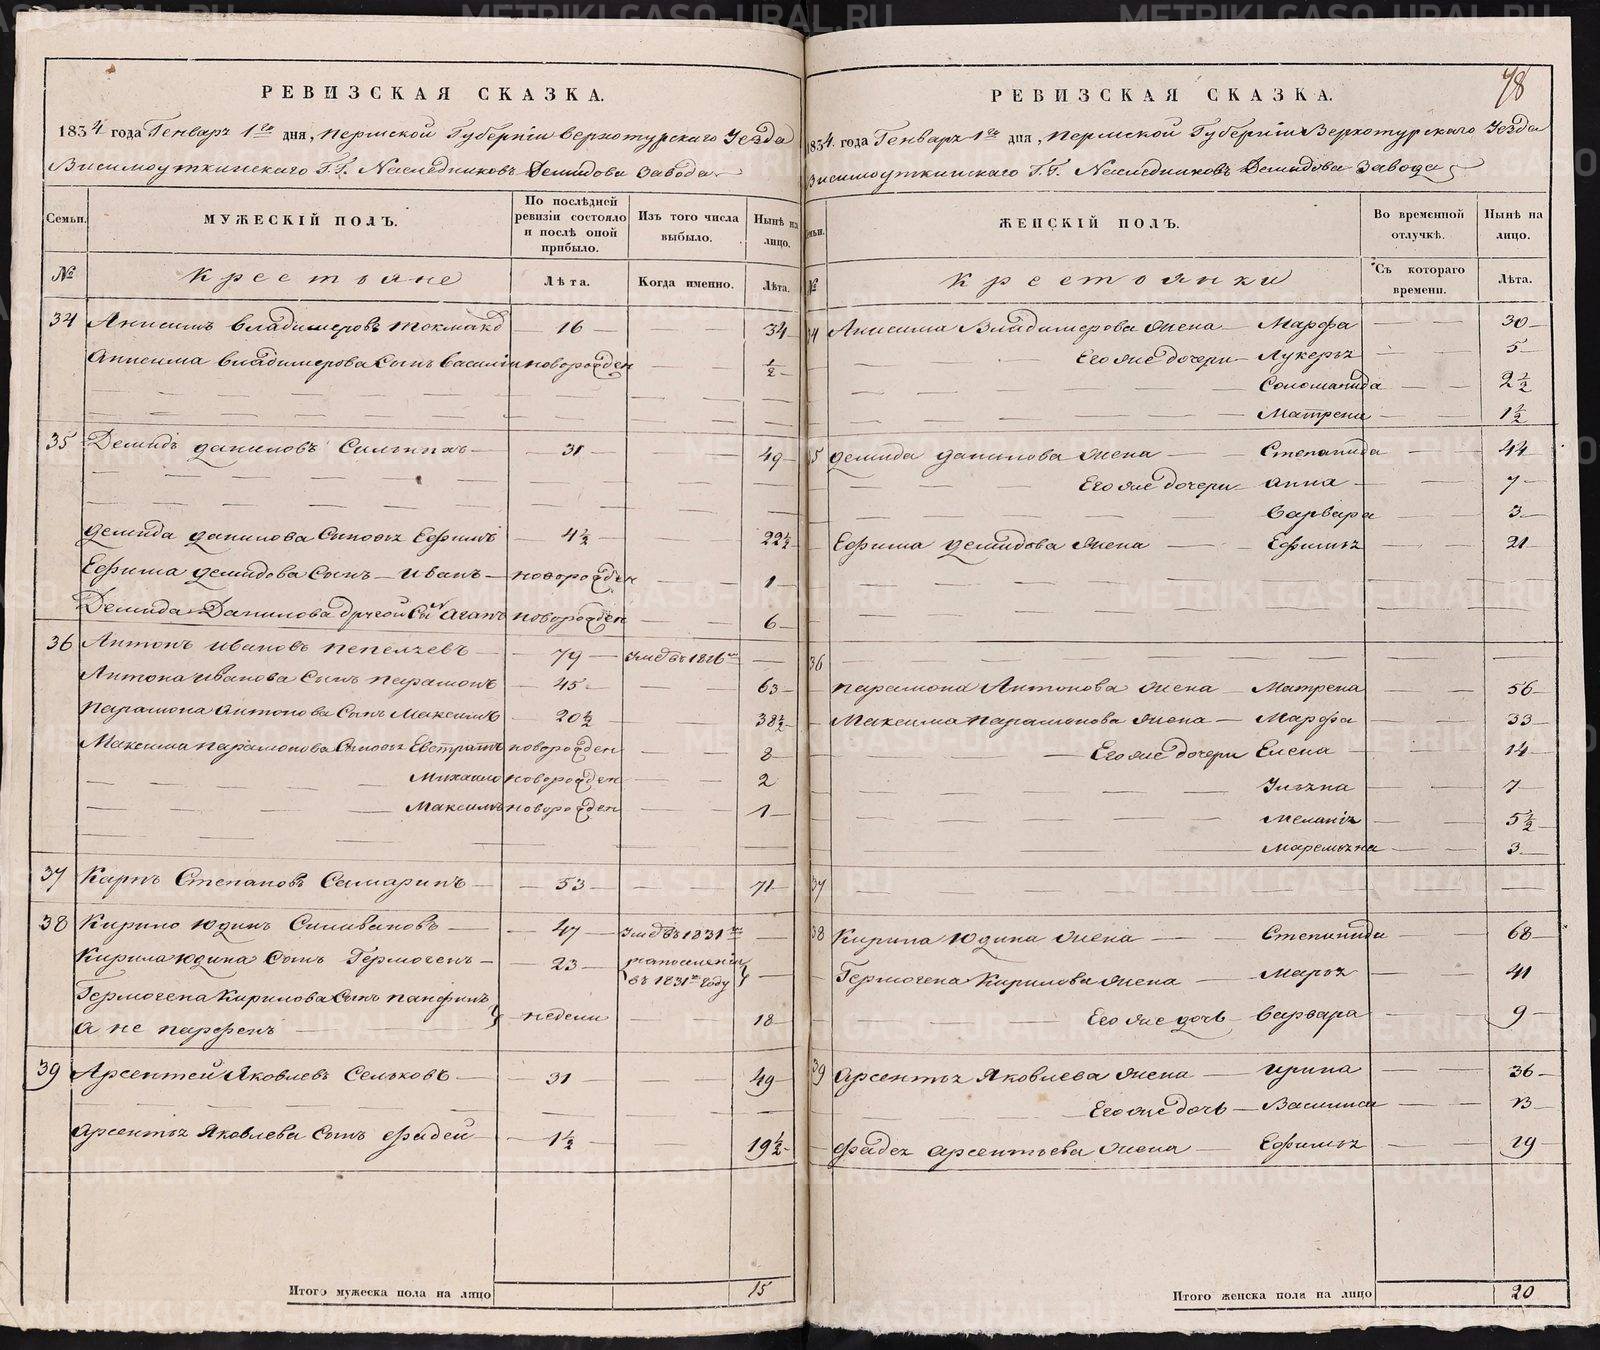 РЕВИЗСКАЯ СКАЗКА.
1834 года Генваря 1го дня, Пермской Губернiи Верхотурскаго Уезда
Висимоуткинскаго Г.Г. Наследниковъ Демидова завода
Семьи.
МУЖЕСКIЙ ПОЛЪ.
По послѣдней ревизiи состояло и послѣ оной прибыло.
Изъ того числа выбыло.
Нынѣ на лицо.
№
Крестьяне
Лѣта.
Когда именно.
Лѣта.
34 Анисимъ Владимеровъ Токмаковъ 16 — 34
Анисима Владимерова Сынъ Василiй новорожден — ½
35 Демидъ Даниловъ — 31 — 49
Демида Данилова Сыновья Ефимъ 4½ — 22½
Ефима Демидова Сынъ — Иванъ — новорожден — 1
Демида Данилова другой Сынъ Агапъ новорожден — 6
36 Антонъ Ивановъ Пепеляевъ — 79 — — —
Антона Иванова Сынъ Парамонъ — 45 — 63
Парамона Антонова Сынъ Максимъ — 20½ — 38½
Максима Парамонова Сыновья Евстратъ новорожден — 8
Михаило новорожден — 2
Максимъ новорожден — 1
37 Карпъ Степановъ Самаринъ — 53 — 71
38 Кирило Юдинъ Силивановъ — 47 — —
Кирила Юдина Сынъ Гермогенъ — 23 — въ 1831м Году —
Гермогена Кирилова Сынъ Панфилъ
а не Парфенъ — недели — 18
39 Арсентей Яковлевъ Сельковъ — 31 — 49
Арсентья Яковлева Сынъ Фадей — 1½ — 19½
Итого мужеска пола на лицо 15
78
РЕВИЗСКАЯ СКАЗКА.
1834. года Генваря 1го дня, Пермской Губернiи Верхотурскаго Уезда
Висимоуткинскаго Г.Г. Наследниковъ Демидова Завода
ЖЕНСКIЙ ПОЛЪ.
Во временной отлучкѣ.
Нынѣ на лицо.
№
Крестьянки
Съ котораго времени.
Лѣта.
34 Анисима Владимерова жена — Марфа — 30
Его же дочери — Лукерья — 5
Соломанида — 2½
Матрена — 1½
35 Демида Данилова жена — Степанида — 44
Его же дочери — Анна — 7
Варвара — 3
Ефима Демидова жена — Ефимья — 21
36
Парамона Антонова жена — Матрена — 56
Максима Парамонова жена — Марфа — 33
Его же дочери Елена — 14
Ульяна — 7
Меланiя — 5½
Маремьяна — 3
37
38 Кирила Юдина жена — Степанида — 68
Гермогена Кирилова жена — Марья — 41
Его же дочь Варвара — 9
39 Арсентья Яковлева жена — Ирина — 36
Его же дочь — Василиса — 13
Фадея Арсентьева жена — Ефимья — 19
Итого женска пола на лицо 20
METRIKI.GASO-URAL.RU